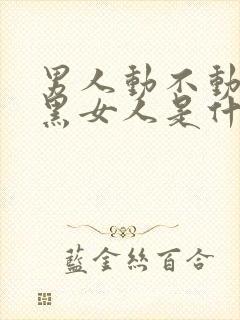 男人動不動
黑女人是什
藍金絲百合